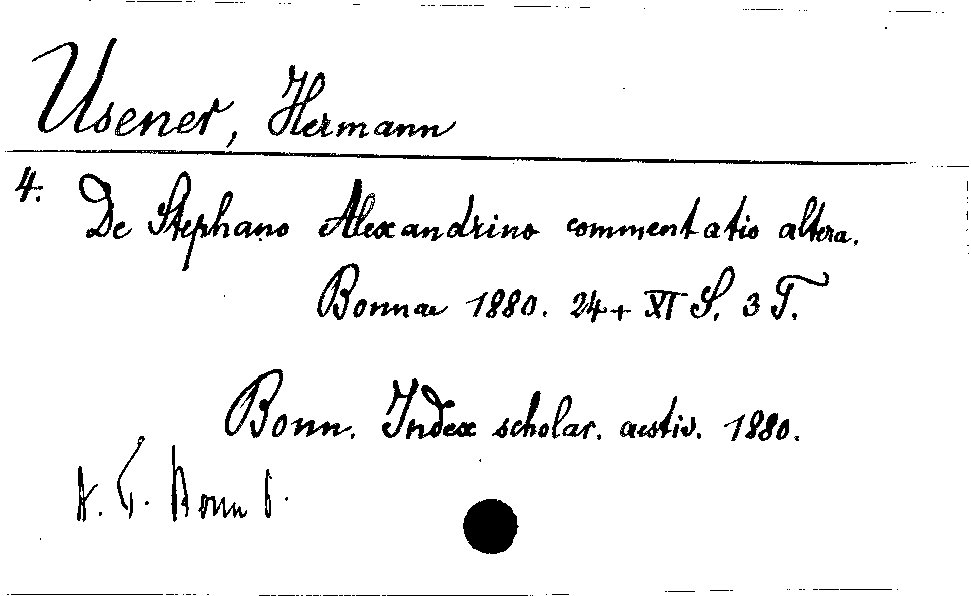 Usener, Hermann
4. De Stephano Alexandrino commentatio altera.
Bonnae 1880. 24 + XI S. 3 T.
Bonn. Index scholar. aestiv. 1880.
Bonn